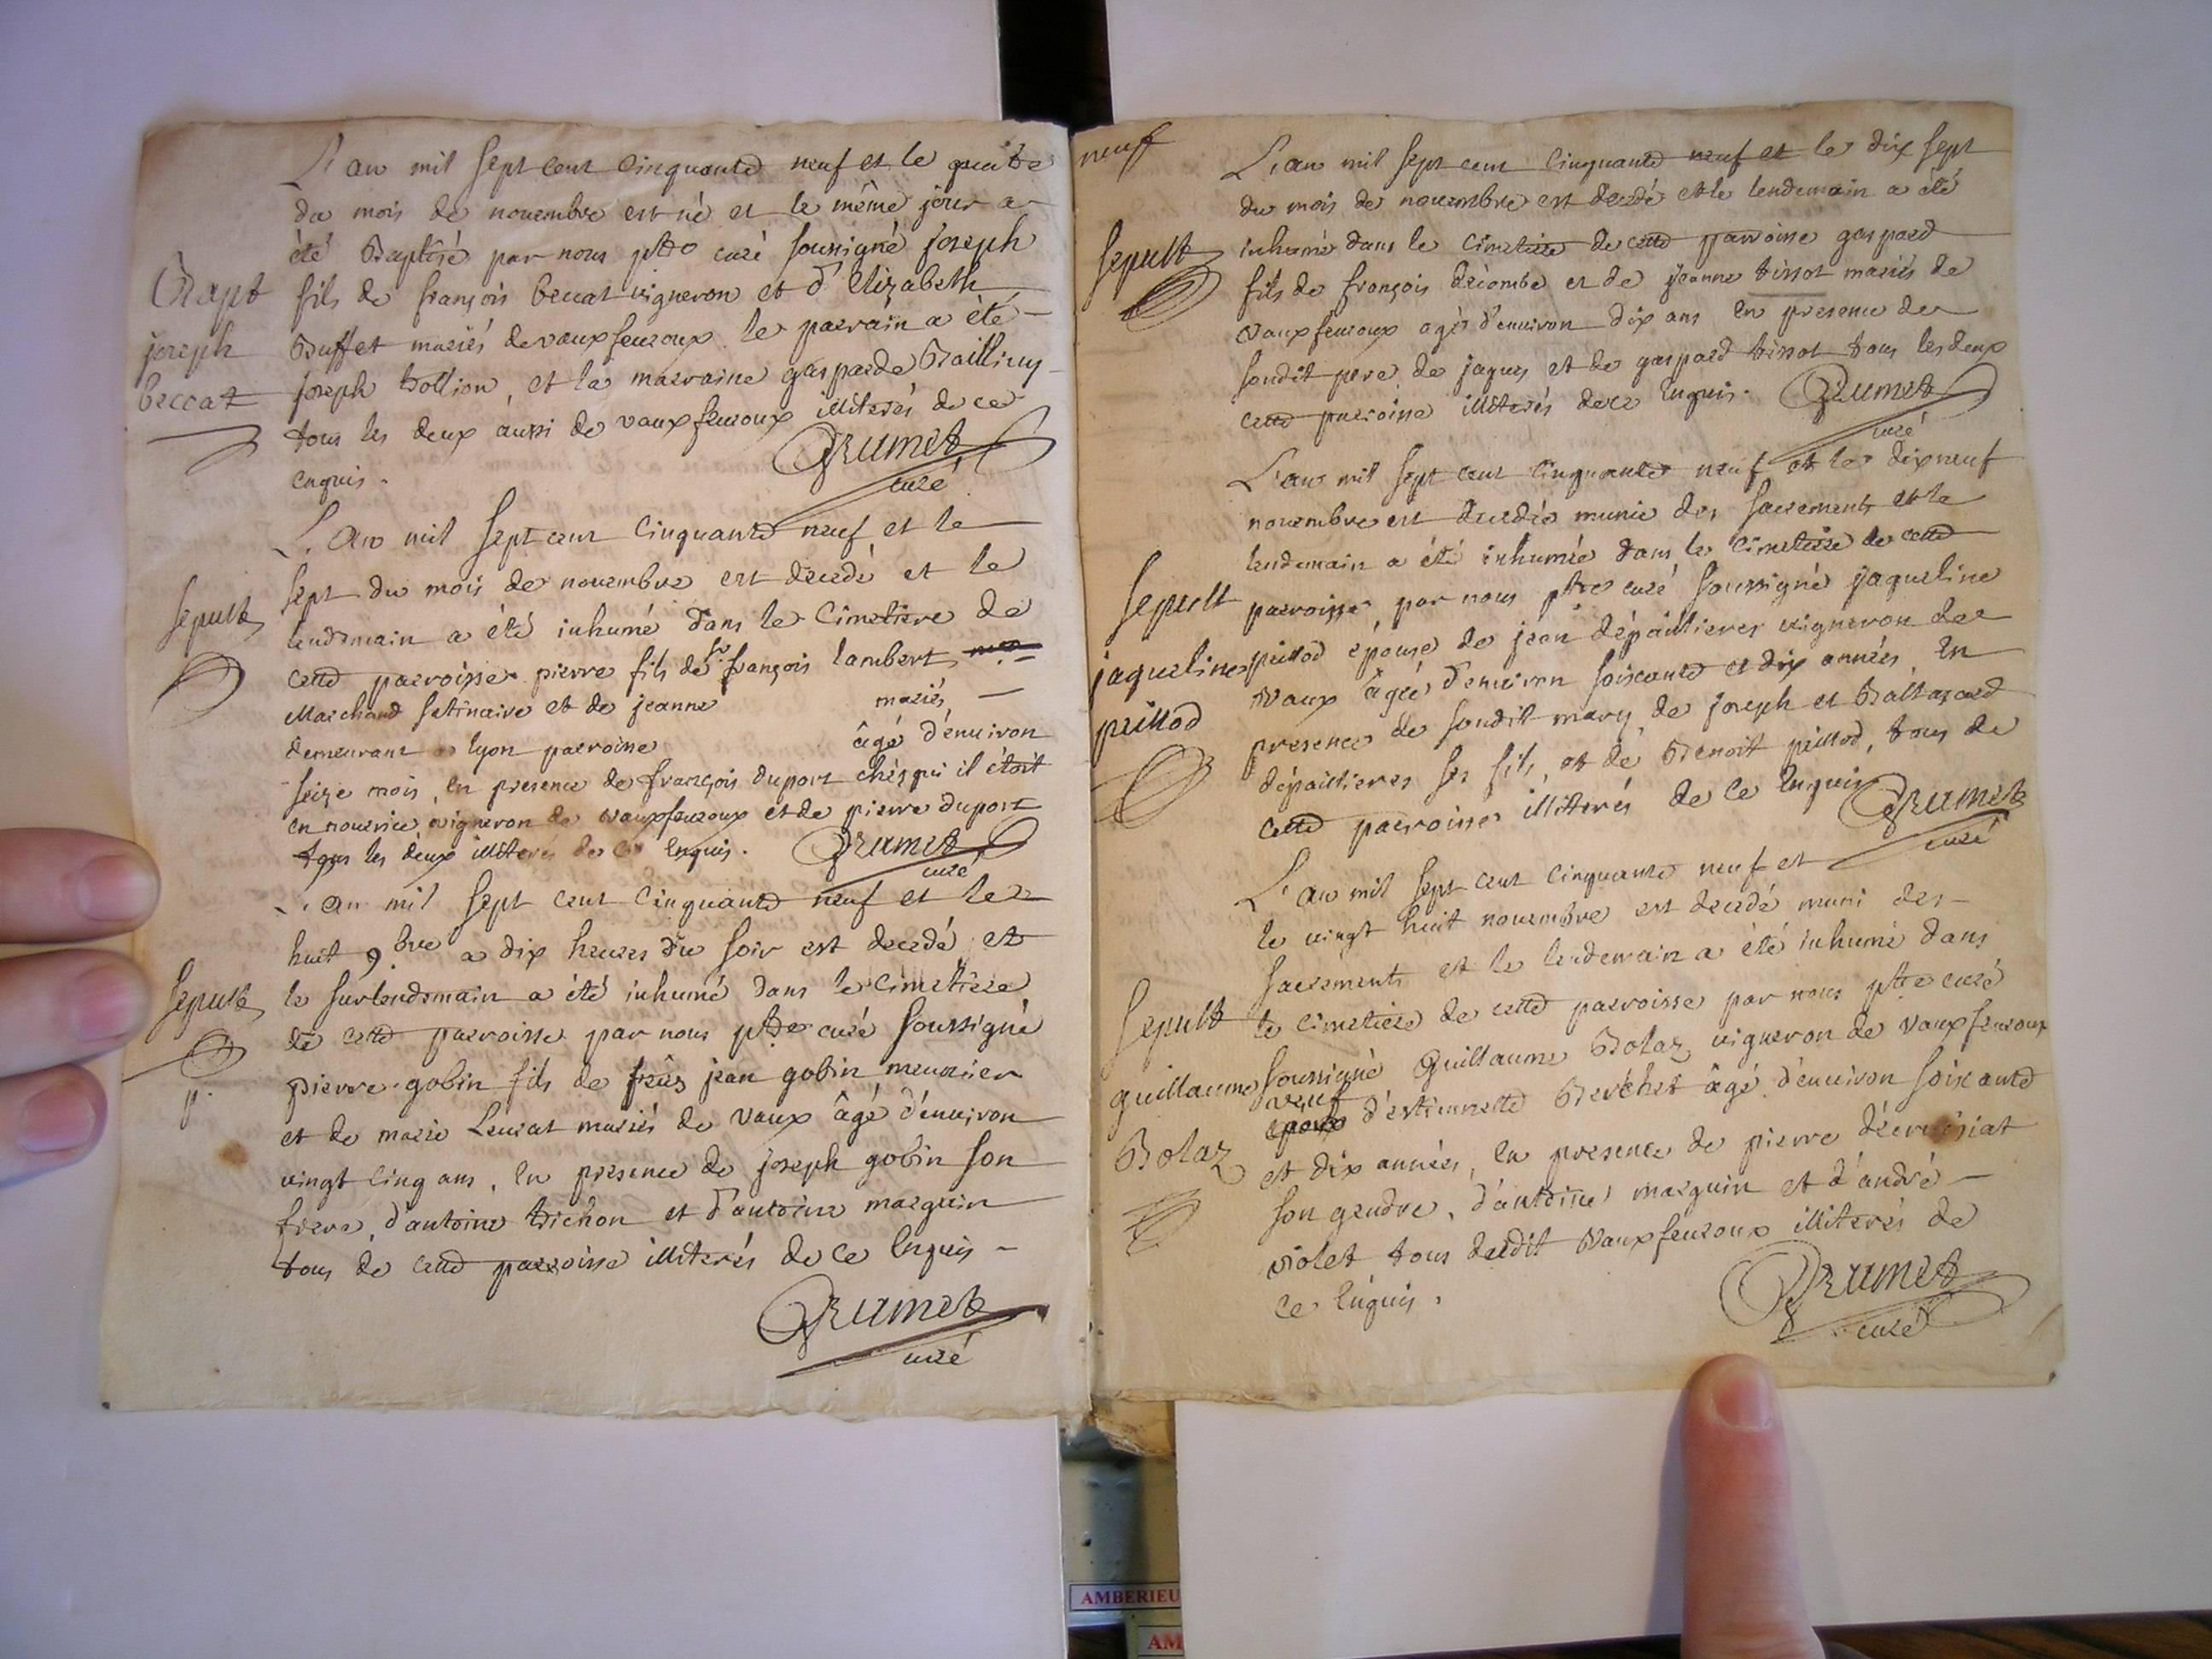 L'an mil sept cent cinquante neuf et le quatre
du mois de novembre est né et le même jour a
été Baptisé par nous ptre curé soussigné joseph
Bapt
fils de françois beccat vigneron et d'Elizabeth
joseph
Buffet mariés de vauxfevroux le parrain a été
beccat
joseph tollion, et la marraine gasparde
tous les deux aussi de vauxfevroux illiterés de ce
enquis.
Grumet
curé
L'an mil sept cent cinquante neuf et le
sept du mois de novembre est decedé et le
Sepult
lendemain a été inhumé dans le Cimetiere de
cette parroisse pierre fils de sr françois lambert
Marchand satinaire et de jeanne mariés
demeurant a lyon parroisse âgé d'environ
seize mois, en presence de françois duport chés qui il étoit
en nourrice vigneron de vauxfevroux et de pierre duport
tous les deux illiterés de ce enquis.
Grumet
curé
L'an mil sept cent cinquante neuf et le
huit 9.bre a dix heures du soir est decedé et
Sepult
le surlendemain a été inhumé dans le Cimetiere
de cette parroisse par nous ptre curé soussigné
pierre gobin fils de feus jean gobin meunier
et de marie Leurat mariés de vaux âgé d'environ
vingt cinq ans, en presence de joseph gobin son
frere, d'antoine trichon et d'antoine marguin
tous de cette parroisse illiterés de ce enquis
Grumet
curé
neuf
L'an mil sept cent cinquante neuf et le dix sept
du mois de novembre est decedé et le lendemain a été
Sepult
inhumé dans le Cimetiere de cette parroisse gaspard
fils de françois décombe et de jeanne tissot mariés de
vauxfevroux agé d'environ dix ans en presence de
sondit pere de jaques et de gaspard tissot tous les deux
cette parroisse illiterés de ce enquis.
Grumet
curé
L'an mil sept cent cinquante neuf et le dixneuf
novembre est decedée munie des sacrements et le
lendemain a été inhumée dans le Cimetiere de cette
Sepult
parroisse par nous ptre curé soussigné jaqueline
jaqueline
peillod épouse de jean dépaillieres vigneron de
peillod
vaux âgée d'environ soixante et dix années, en
presence de sondit mary de joseph et Baltazard
dépaillieres ses fils, et de Benoit peillod, tous de
cette parroisse illiterés de ce enquis
Grumet
curé
L'an mil sept cent cinquante neuf et
le vingt huit novembre est decedé muni des
sacrements et le lendemain a été inhumé dans
Sepult
le Cimetiere de cette parroisse par nous ptre curé
guillaume
soussigné Guillaume Bolaz vigneron de vauxfevroux
veuf
epoux d'estiennette Berchet âgé d'environ soixante
Bolaz
et dix années, en presence de pierre
son gendre, d'antoine marguin et d'andré
violet tous dudit vauxfevroux illiterés de
ce enquis.
Grumet
curé
AMBERIEU
AM